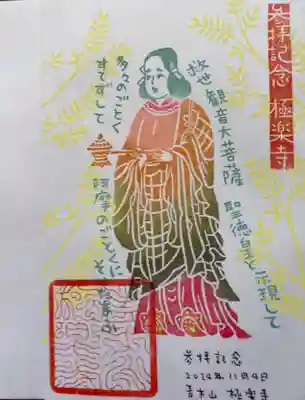 参拝記念 極楽寺
救世観音大菩薩
聖徳皇と示現して
多々のごとく
すてずして
阿摩のごとくに
そひたまふ
参拝記念
2024年11月4日
吉水山 極楽寺